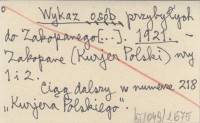 Wykaz osób przybyłych
do Zakopanego [...]. 1921. -
Zakopane (Kurjer Polski) nry
1 i 2.
Ciąg dalszy w numerze 218
"Kurjera Polskiego".